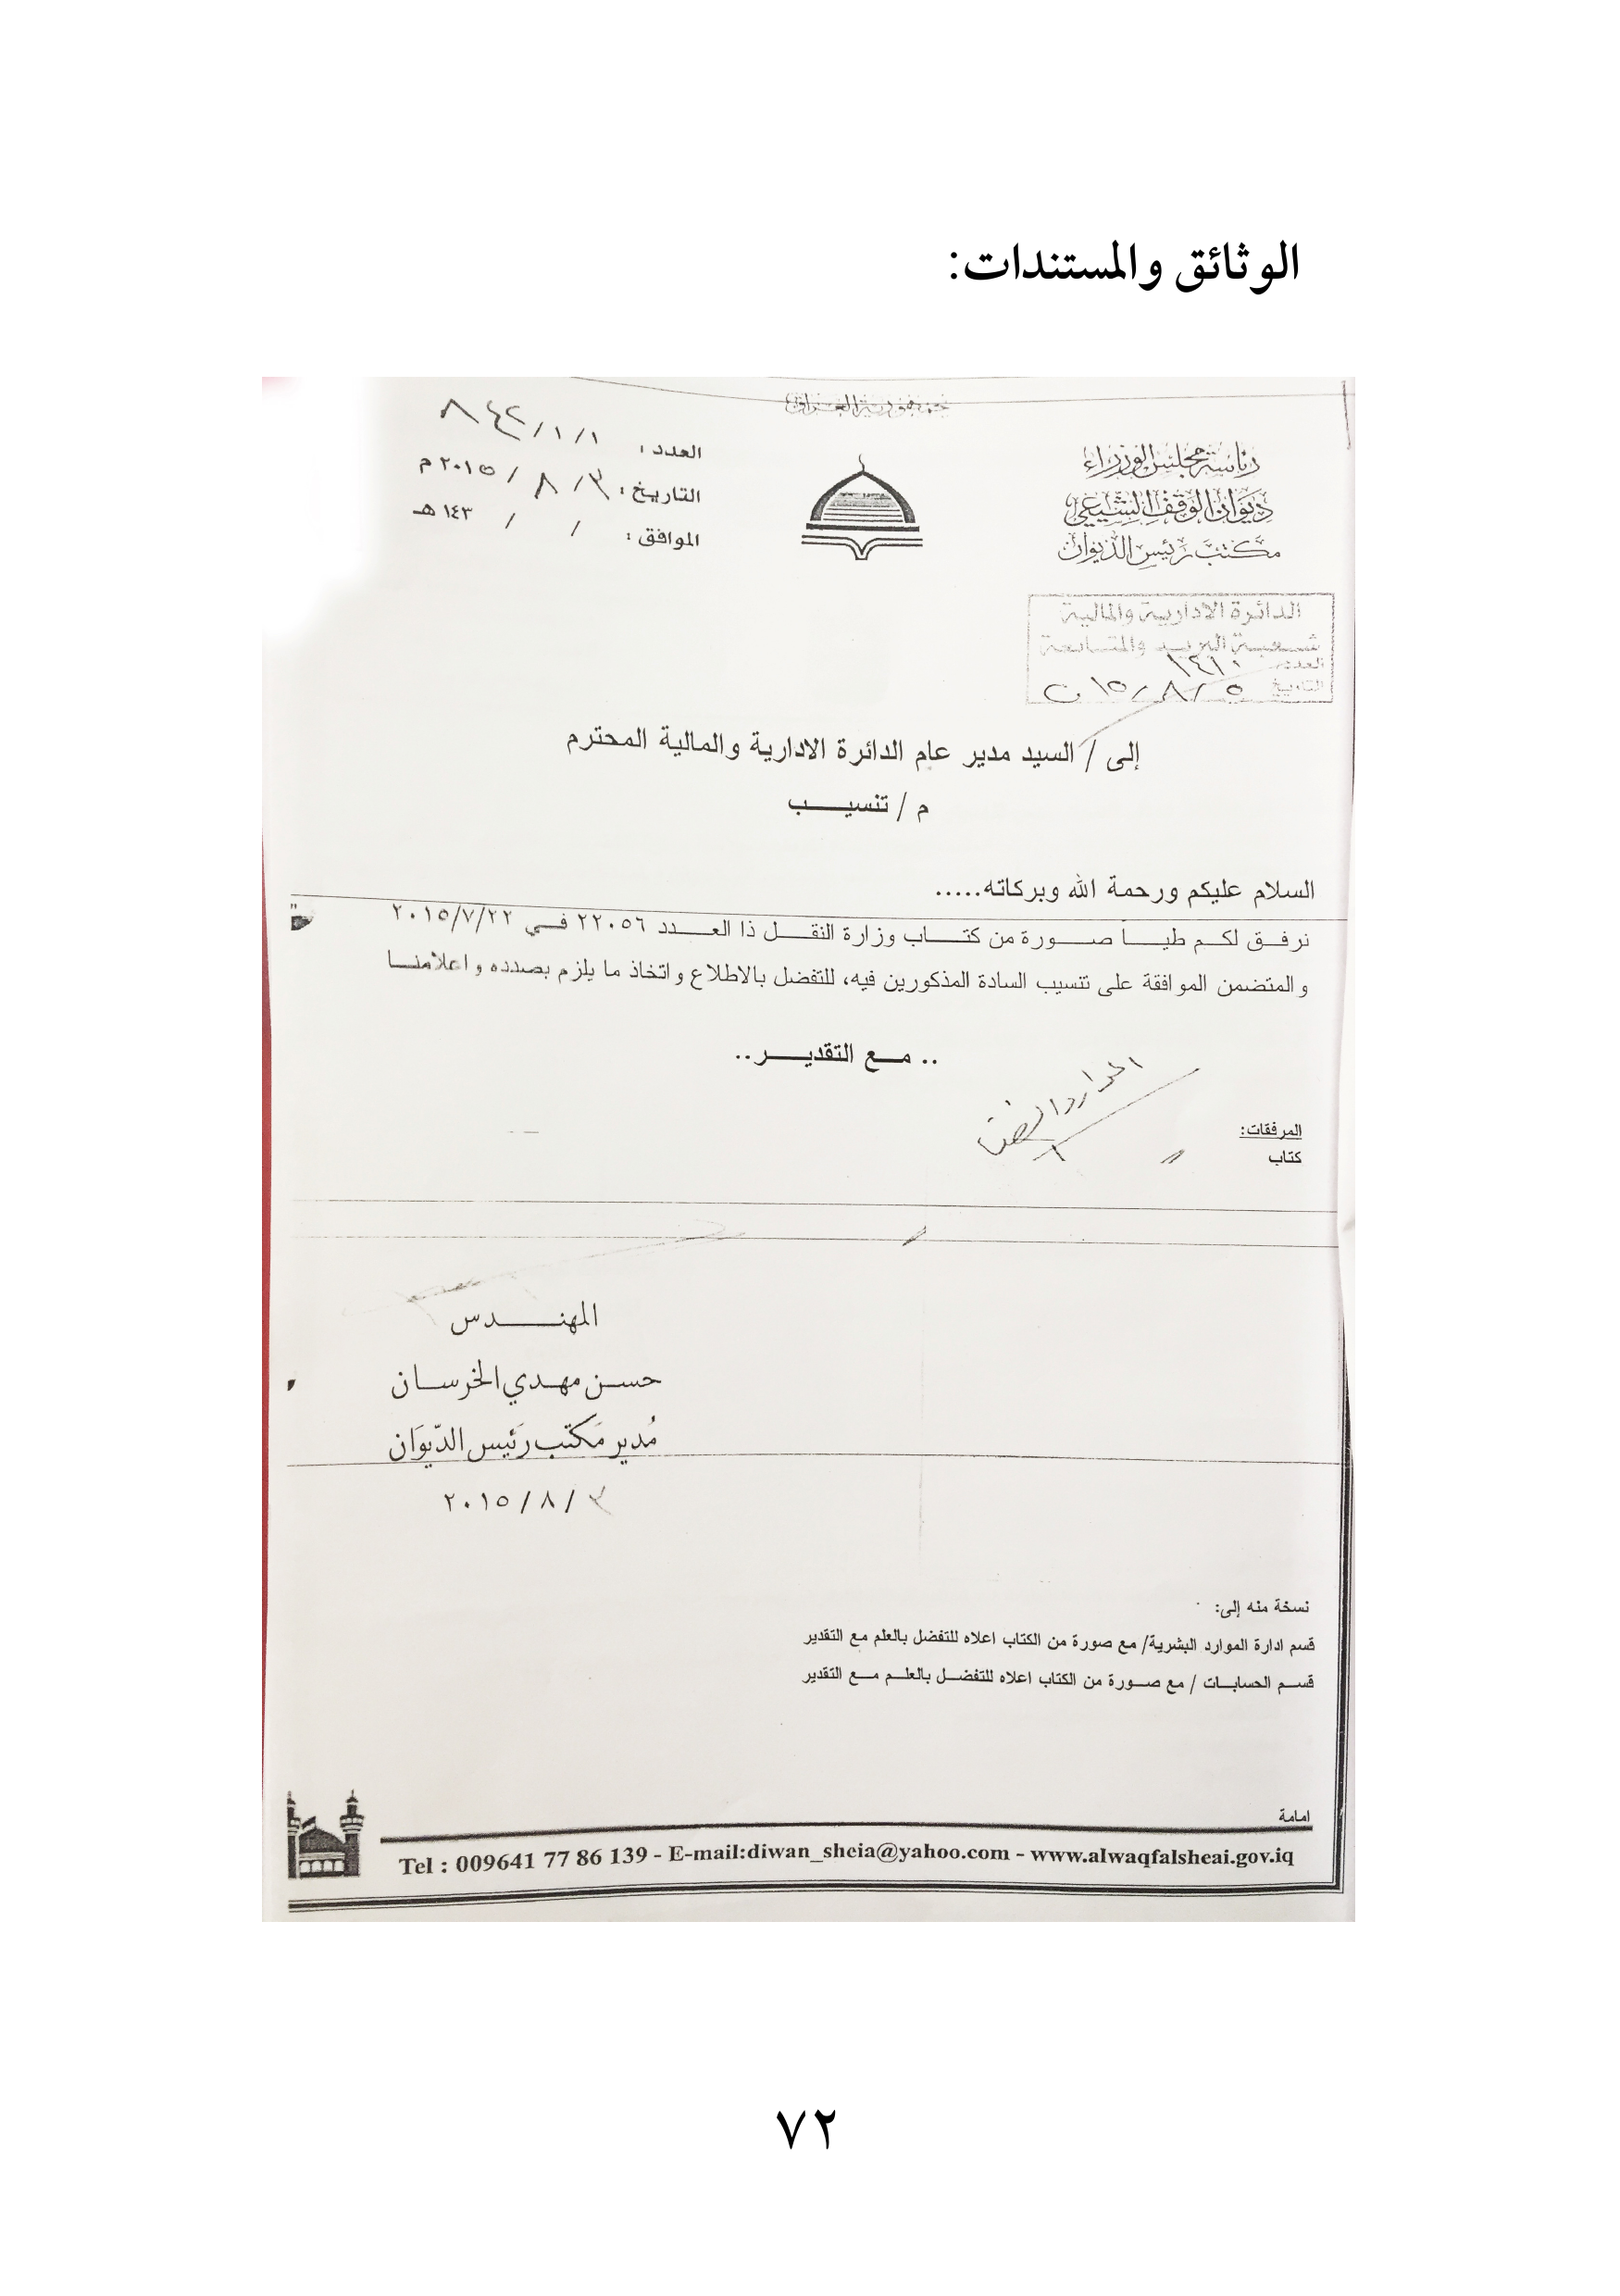 الوثائق والمستندات:
جمهورية العراق
رئاسة مجلس الوزراء
ديوان الوقف الشيعي
مكتب رئيس الديوان
العدد : ١/١/٨٤٢
التاريخ : ٣/ ٨ /٢٠١٥ م
الموافق : / / ١٤٣ هـ
الدائرة الادارية والمالية
شعبة البريد والمتابعة
العدد ١٤١٠
التاريخ ٥/ ٨/ ٢٠١٥
إلى / السيد مدير عام الدائرة الادارية والمالية المحترم
م / تنسيب
السلام عليكم ورحمة الله وبركاته.....
نرفق لكم طيا صورة من كتاب وزارة النقل ذا العدد ٢٢٠٥٦ في ٢٠١٥/٧/٢٢
والمتضمن الموافقة على تنسيب السادة المذكورين فيه، للتفضل بالاطلاع واتخاذ ما يلزم بصدده واعلامنا
.. مع التقدير..
المرفقات:
كتاب
المهندس
حسن مهدي الخرسان
مُدير مَكتب رَئيس الدّيوَان
٣ /٨ /٢٠١٥
نسخة منه إلى:
قسم ادارة الموارد البشرية/ مع صورة من الكتاب اعلاه للتفضل بالعلم مع التقدير
قسم الحسابات / مع صورة من الكتاب اعلاه للتفضل بالعلم مع التقدير
امامة
Tel : 009641 77 86 139 - E-mail:diwan_sheia@yahoo.com - www.alwaqfalsheai.gov.iq
٧٢